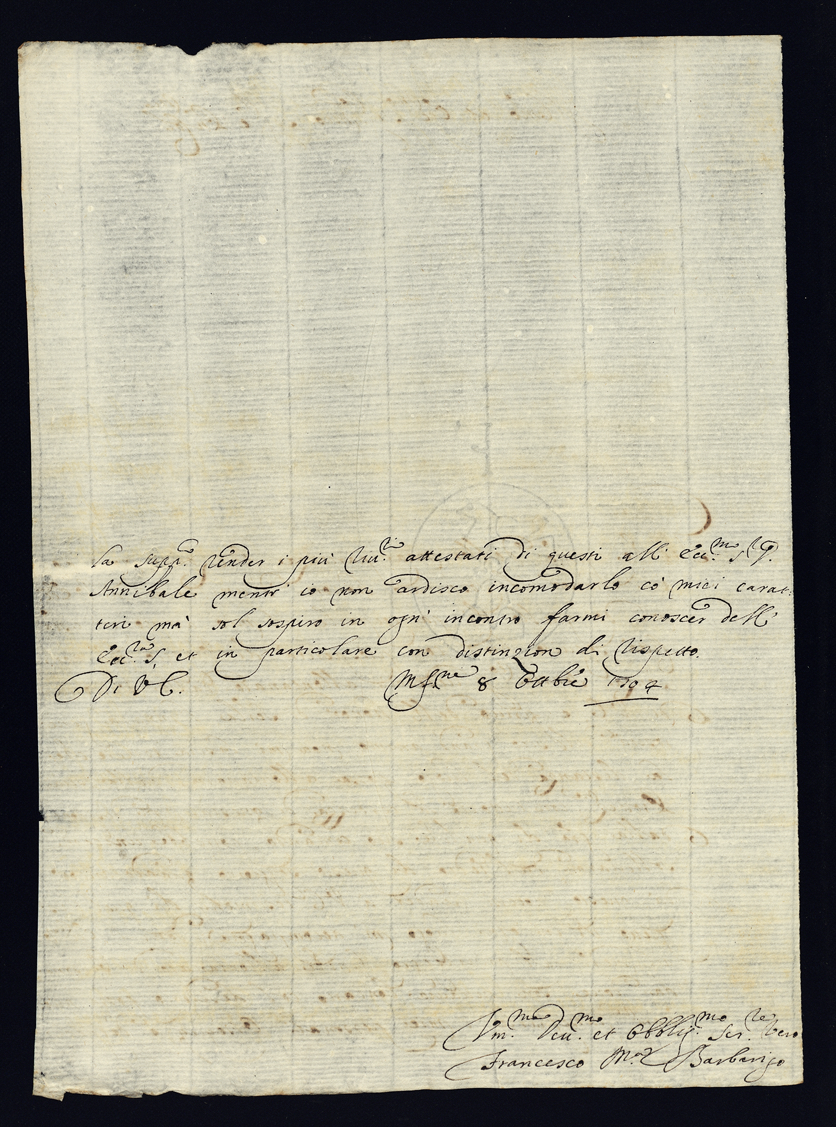 La supp.^co render i più riu.^ti attestati di questi all' Ecc.^mo S.^r
Annibale mentr' io non ardisco incomodarlo cò miei carat-
teri mà sol sospiro in ogn' incontro farmi conoscer dell'
Ecc.^za S. et in particolare con distinzion di rispetto.
Di V E. 8 Ottbre
Um.^mo Deu.^mo et Obblig.^mo Ser.^re vero
Francesco M.^a Barbarigo